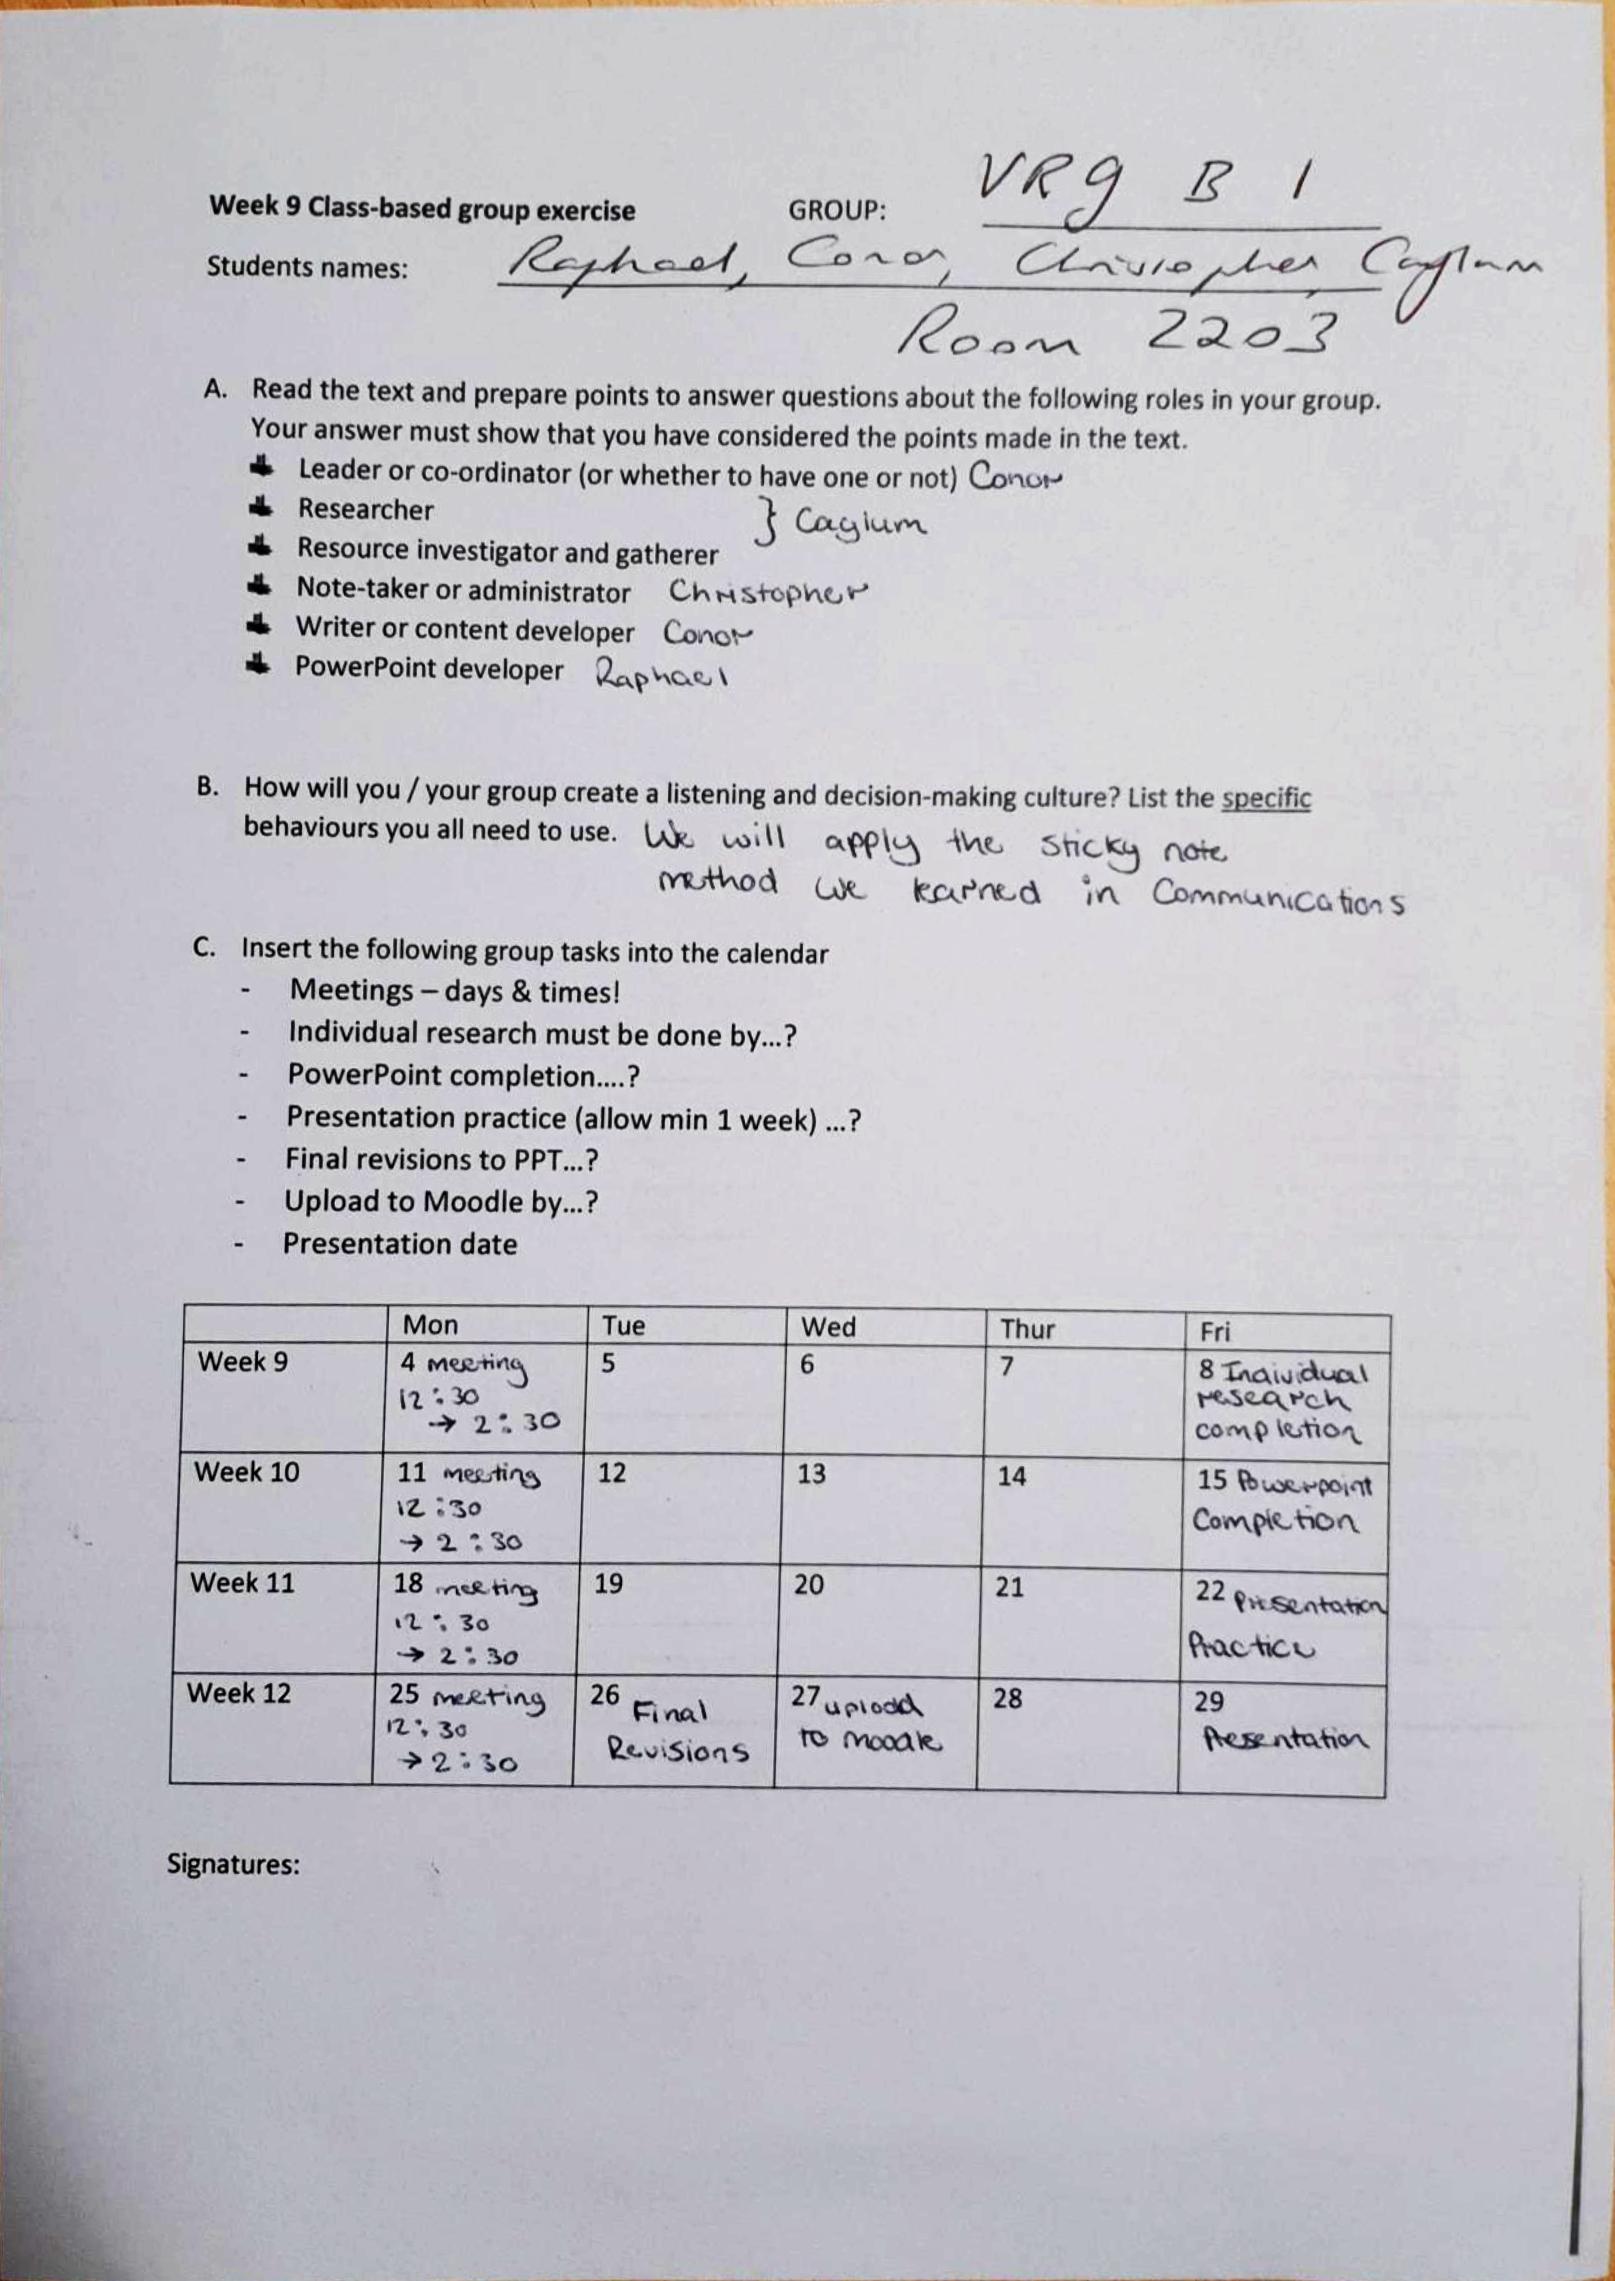 VRg B 1
Week 9 Class-based group exercise GROUP:
Students names: Raphael, Conor, Christopher, Caglum
Room 2203
A. Read the text and prepare points to answer questions about the following roles in your group.
Your answer must show that you have considered the points made in the text.
Leader or co-ordinator (or whether to have one or not) Conor
Researcher
} Caglum
Resource investigator and gatherer
Note-taker or administrator Christopher
Writer or content developer Conor
PowerPoint developer Raphael
B. How will you / your group create a listening and decision-making culture? List the specific
behaviours you all need to use. We will apply the sticky note
method we learned in Communications
C. Insert the following group tasks into the calendar
- Meetings – days & times!
- Individual research must be done by...?
- PowerPoint completion....?
- Presentation practice (allow min 1 week) ...?
- Final revisions to PPT...?
- Upload to Moodle by...?
- Presentation date
Mon Tue Wed Thur Fri
Week 9 4 meeting 5 6 7 8 Individual
12:30 research
→ 2:30 completion
Week 10 11 meeting 12 13 14 15 Powerpoint
12:30 Completion
→ 2:30
Week 11 18 meeting 19 20 21 22 Presentation
12:30 Practice
→ 2:30
Week 12 25 meeting 26 Final 27 upload 28 29
12:30 Revisions to moodle Presentation
→ 2:30
Signatures: